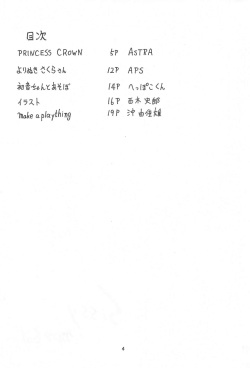 目次
PRINCESS CROWN 5P ASTRA
よりぬきさくらさん 12P APS
初音ちゃんとあそぼ 14P へっぽこくん
イラスト 16P 西木史郎
make a plaything 19P 沖由佳雄
4